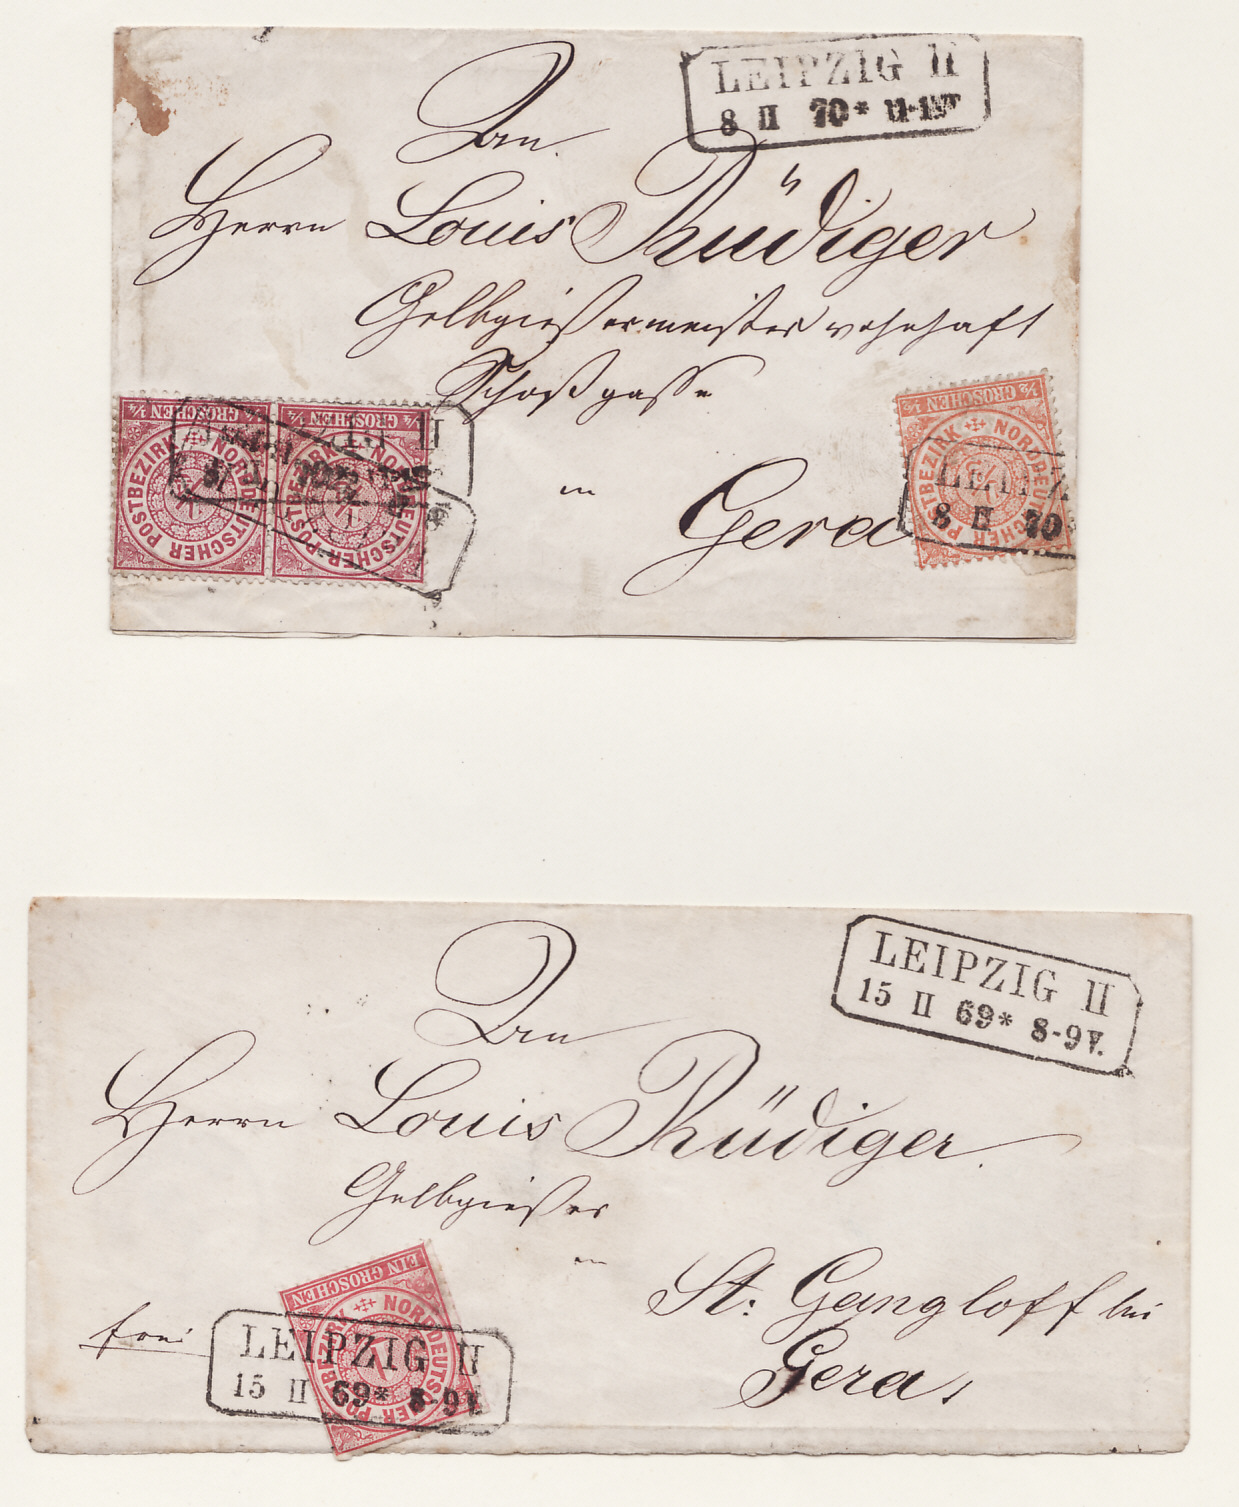 LEIPZIG II
8 II 70* 11-12
An
Herrn Louis Rüdiger
Gelbgießermeister wohnhaft
Schoßgasse
in
Gera
¼ GROSCHEN ¼
NORDDEUTSCHER POSTBEZIRK
¼ GROSCHEN ¼
NORDDEUTSCHER POSTBEZIRK
½ GROSCHEN ½
NORDDEUTSCHER POSTBEZIRK
LEIPZ
8 II 70*
LEIPZIG II
15 II 69* 8-9 V.
An
Herrn Louis Rüdiger.
Gelbgießer
in
St: Gangloff bei
Gera,
frei
EIN GROSCHEN
NORDDEUTSCHER POSTBEZIRK
1
LEIPZIG II
15 II 69* 8-9 V.